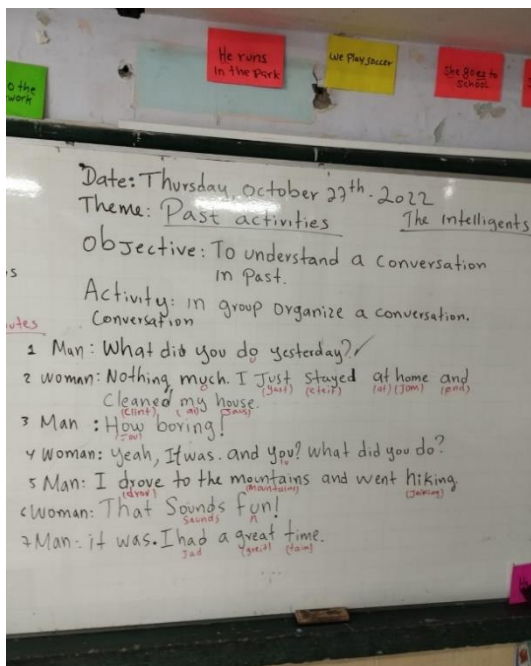 He runs
in the Park
we Play soccer
She goes to
school
o the
work
Date: Thursday, october 27th. 2022
Theme: Past activities
The intelligents
Objective: To understand a conversation
in Past.
Activity: in group organize a conversation.
Conversation
utes
1 Man: What did you do yesterday?✓
2 woman: Nothing, much. I Just stayed at home and
(yast) (steit) (at) (Jom) (and)
cleaned my house.
(clint) (ai) (Jaus)
3 Man: How boring!
4 Woman: Yeah, Itwas. and you? what did you do?
5 Man: I drove to the mountains and went hiking
(drov) (mountains) (Jaiking)
6 Woman: That Sounds fun!
Sounds
7 Man: it was. I had a great time.
Jad (greit) (taim)